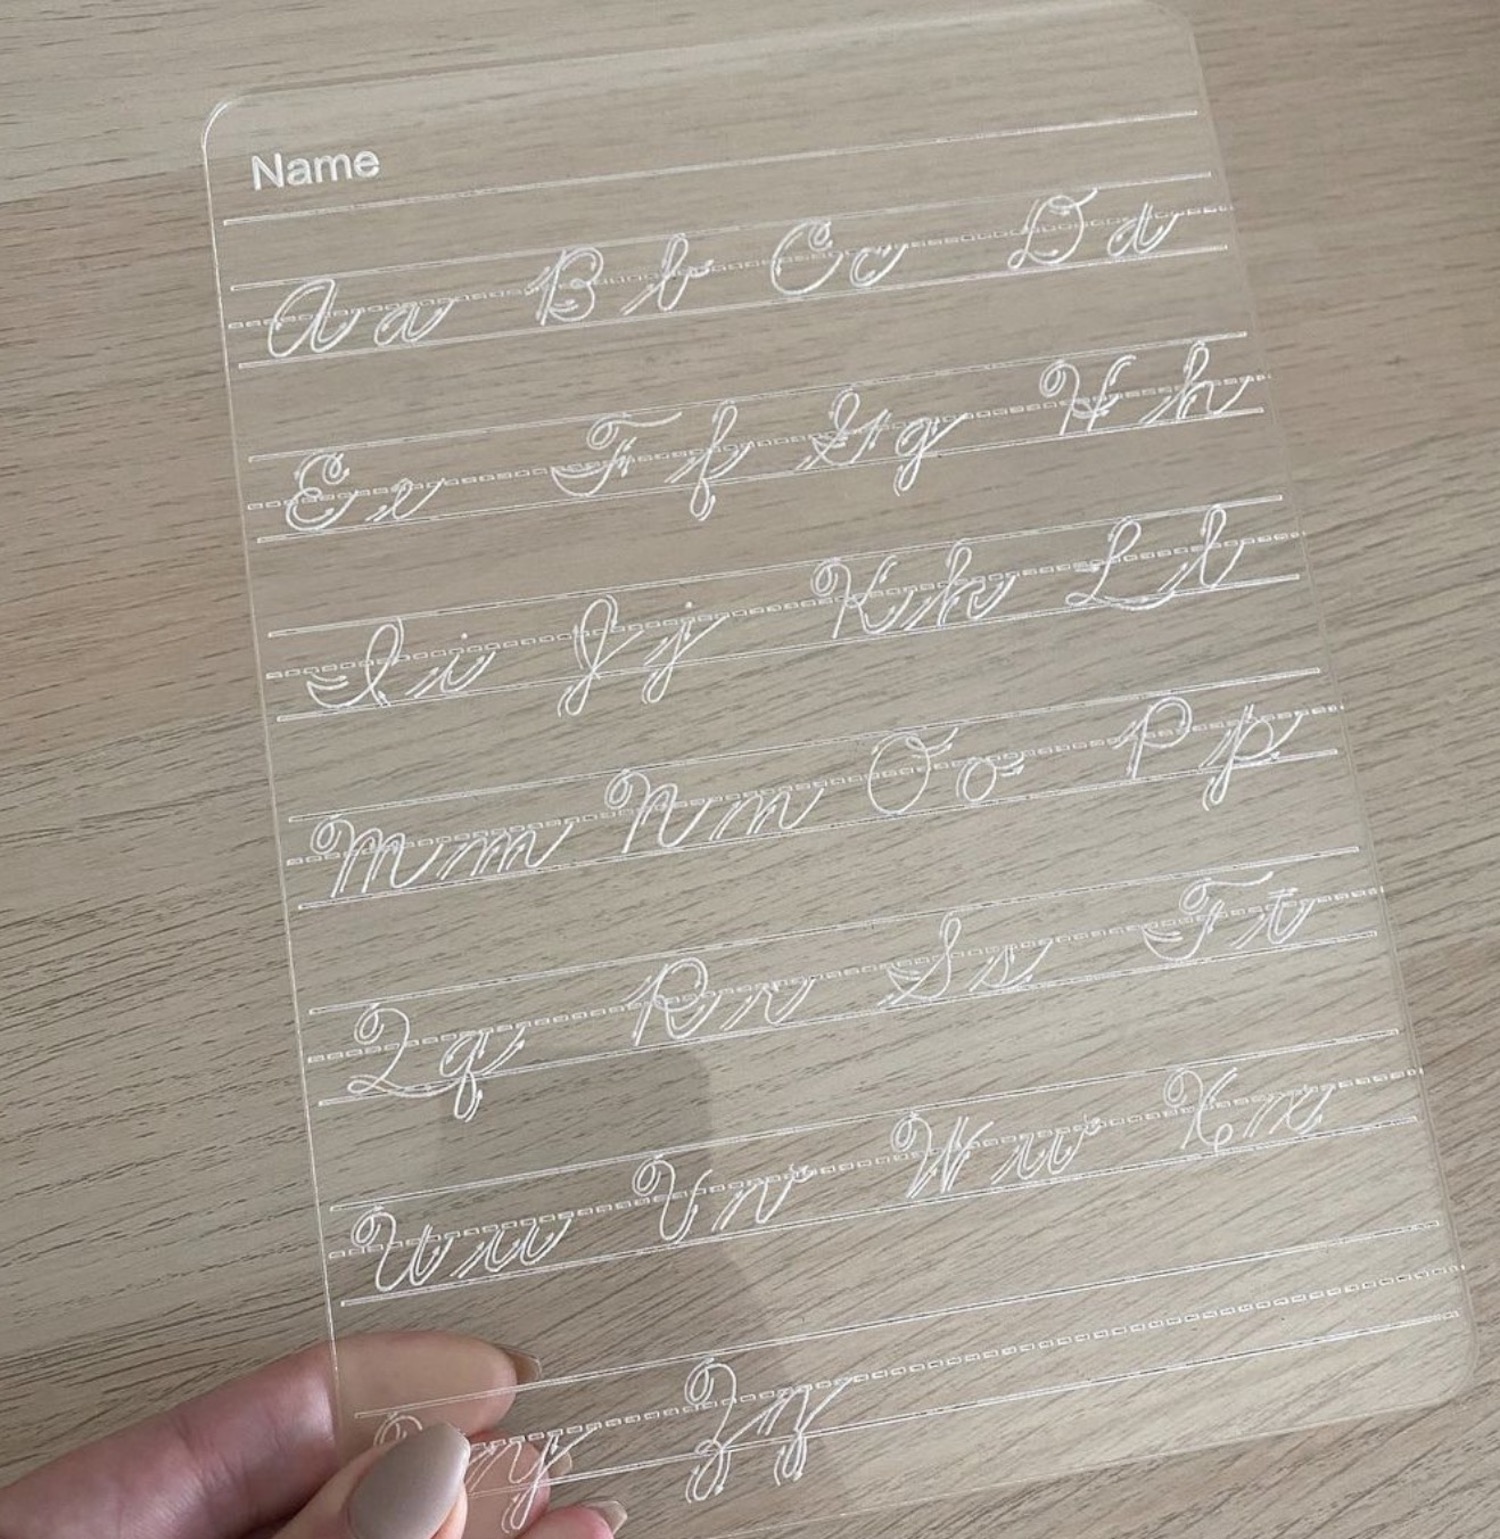 Name
Aa Bb Cc Dd
Ee Ff Gg Hh
Ii Jj Kk Ll
Mm Nn Oo Pp
Qq Rr Ss Tt
Uu Vv Ww Xx
y Zz